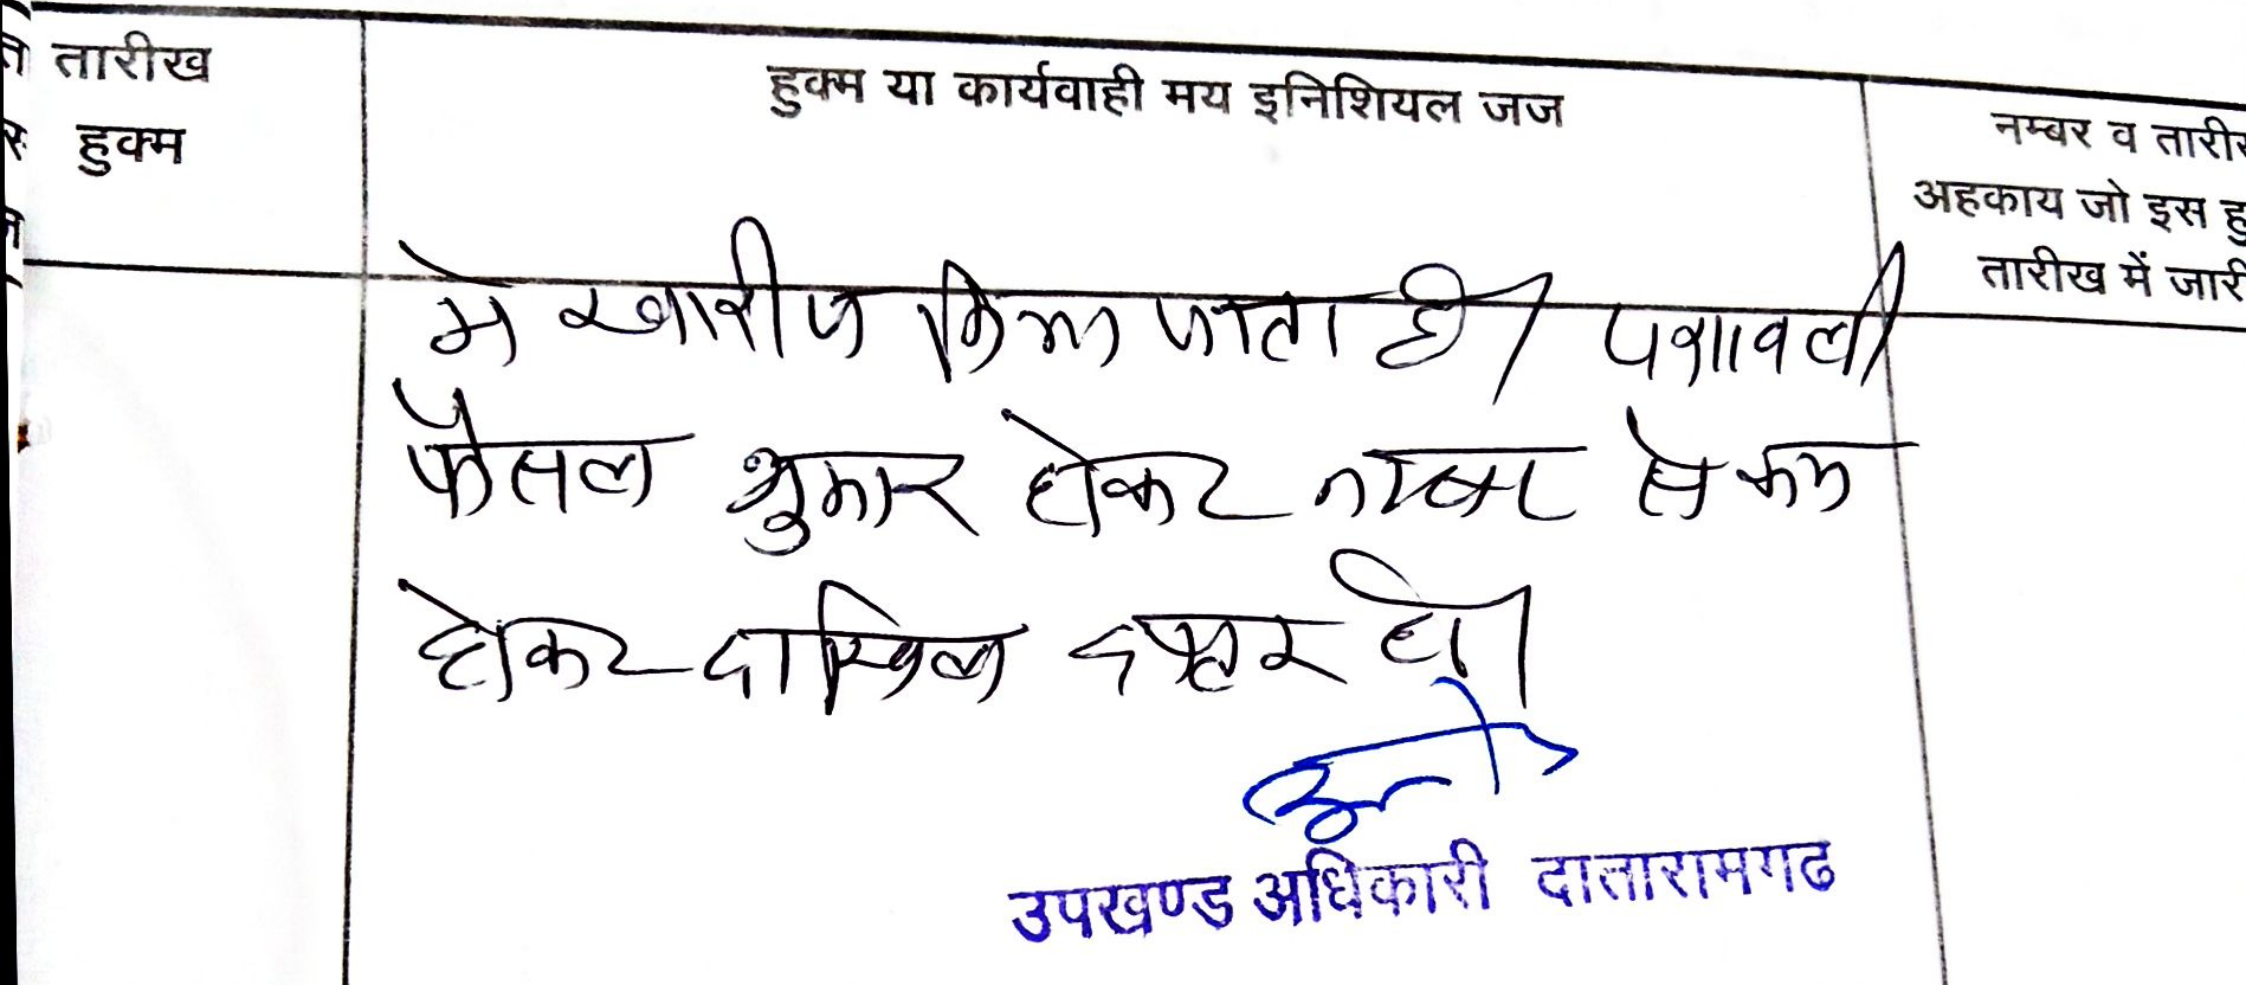 तारीख
हुक्म
हुक्म या कार्यवाही मय इनिशियल जज
नम्बर व तारीख
अहकाय जो इस हु
तारीख में जारी
मे खारीज किया जाता है। पत्रावली
फैसल शुमार होकर नम्बर से कम
होकर दाखिल दफ्तर हो।
उपखण्ड अधिकारी दातारामगढ